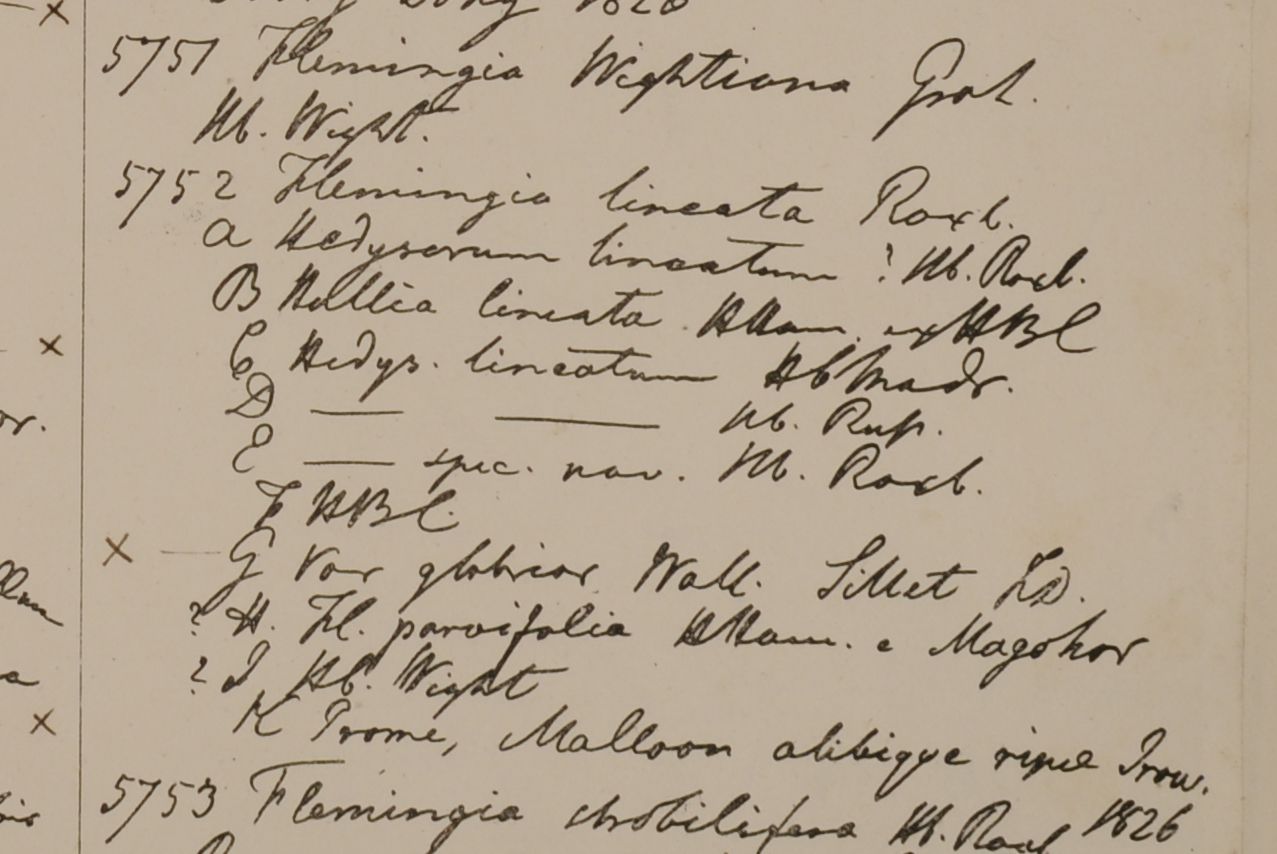 1828
5751 Flemingia Wightiana Grah.
Hb. Wight.
5752 Flemingia lineata Roxb.
a Hedysarum lineatum ? Hb. Roxb.
B Hallia lineata HHam. ex HBC
C Hedys. lineatum Hb Madr.
D — — Hb. Rup.
E — spec. nov. Hb. Roxb.
F HBC.
× — G Var glabrior Wall. Sillet FD.
? H. Fl. parvifolia HHam. e Magohor
? I Hb. Wight
K Prome, Malloon alibique ripae Iraw.
1826
5753 Flemingia strobilifera Hb. Roxb